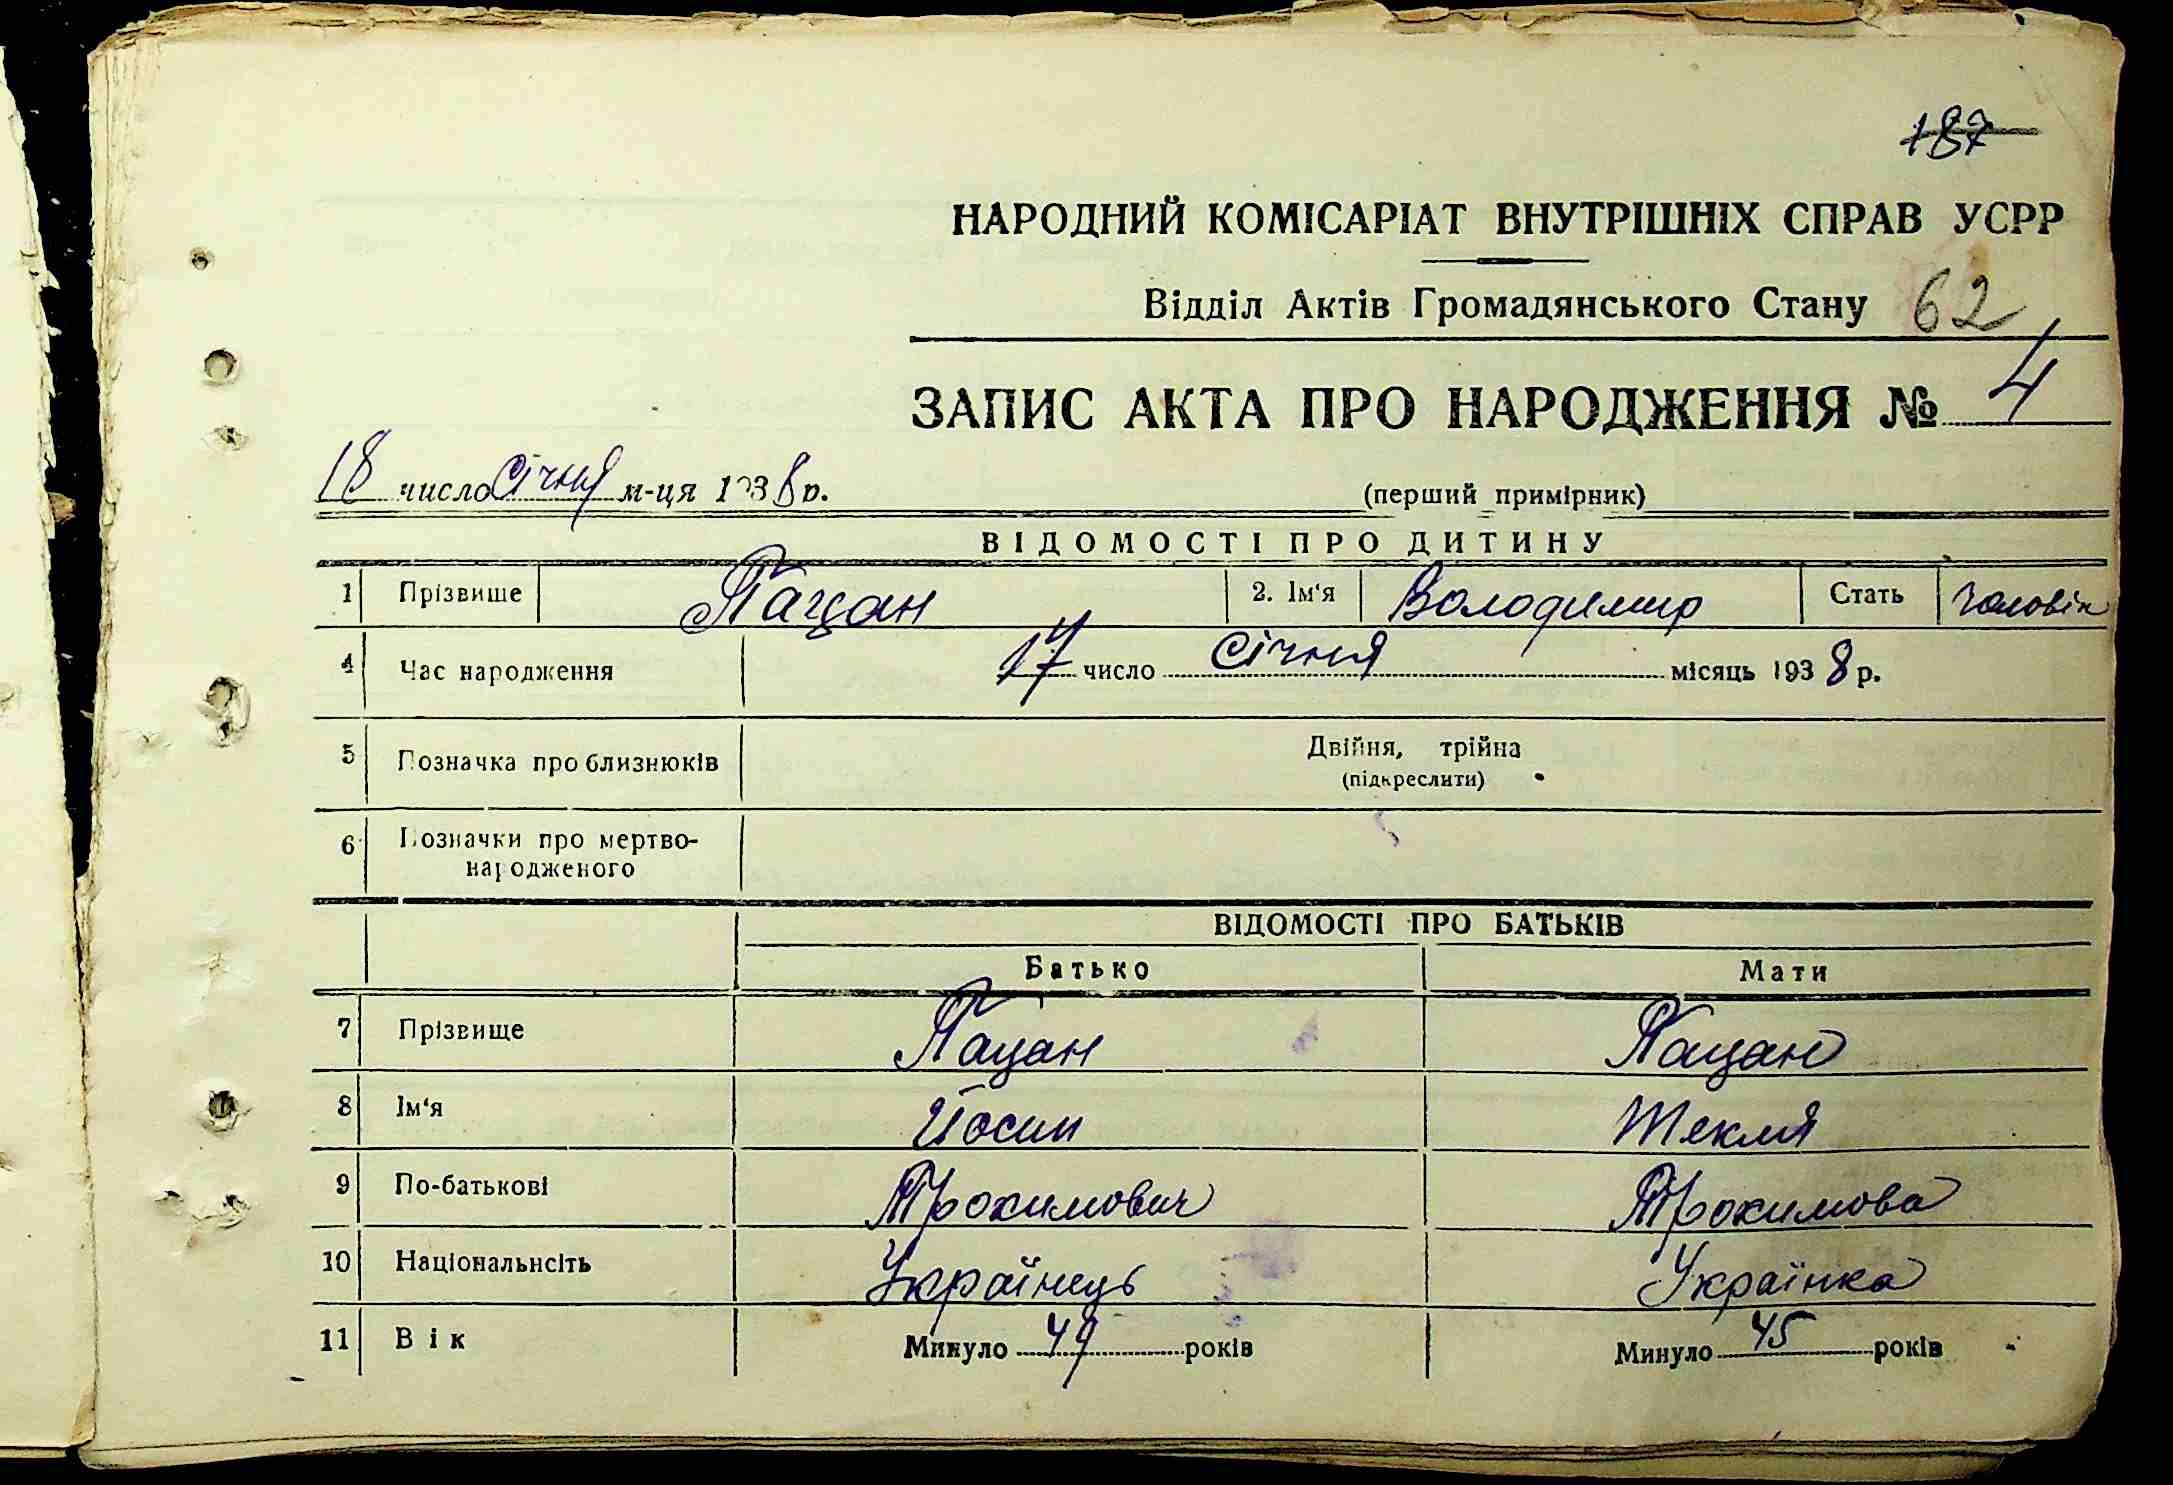 187
НАРОДНИЙ КОМІСАРІАТ ВНУТРІШНІХ СПРАВ УСРР
Відділ Актів Громадянського Стану 62
ЗАПИС АКТА ПРО НАРОДЖЕННЯ № 4
18 число січня м-ця 1938 р. (перший примірник)
ВІДОМОСТІ ПРО ДИТИНУ
1 Прізвище Пацан 2. Ім'я Володимир Стать чоловік
4 Час народження 17 число січня місяць 1938 р.
5 Позначка про близнюків Двійня, трійна
(підкреслити)
6 Позначки про мертво-
народженого
ВІДОМОСТІ ПРО БАТЬКІВ
Батько Мати
7 Прізвище Пацан Пацан
8 Ім'я Йосип Текля
9 По-батькові Трохимович Трохимова
10 Національнсіть Українець Українка
11 Вік Минуло 49 років Минуло 45 років